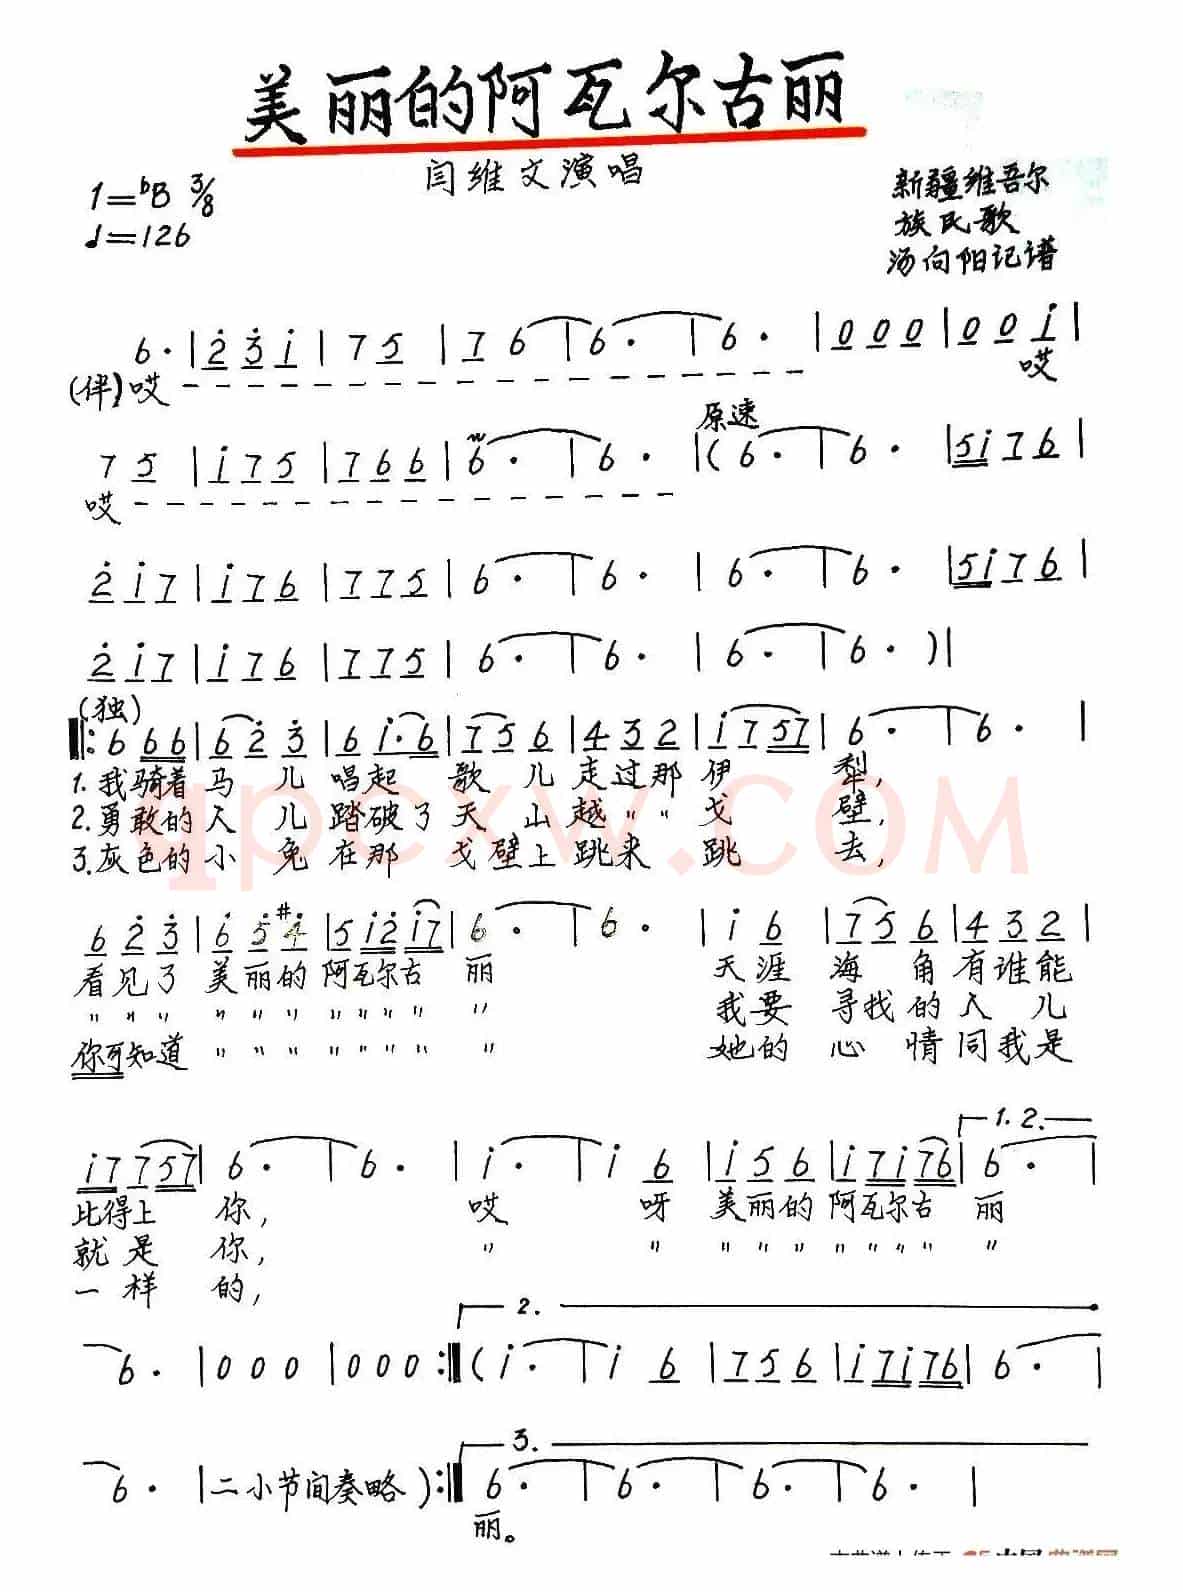 美丽的阿瓦尔古丽
闫维文演唱
1=♭B 3/8
♩=126
新疆维吾尔
族民歌
汤向阳记谱
6·|2 3 i|7 5|7 6|6·|6·|0 0 0|0 0 i|
(伴)哎 哎
原速
7 5|i 7 5|7 6 6|6·|6·|(6·|6·|5 i 7 6|
哎
2 i 7|i 7 6|7 7 5|6·|6·|6·|6·|5 i 7 6|
2 i 7|i 7 6|7 7 5|6·|6·|6·|6·)|
(独)
‖:6 6 6|6 2 3|6 i·6|7 5 6|4 3 2|i 7 5 7|6·|6·|
1.我骑着马儿唱起歌儿走过那伊犁,
2.勇敢的人儿踏破了天山越〃〃戈壁,
3.灰色的小兔在那戈壁上跳来跳去,
6 2 3|6 5 #4|5 i 2 i 7|6·|6·|i 6|7 5 6|4 3 2|
看见了美丽的阿瓦尔古丽 天涯海角有谁能
〃〃〃〃〃〃〃〃〃〃〃 我要寻找的人儿
你可知道〃〃〃〃〃〃〃〃 她的心情同我是
1.2.
i 7 7 5 7|6·|6·|i·|i 6|i 5 6|i 7 i 7 6|6·|
比得上你, 哎呀美丽的阿瓦尔古丽
就是你, 〃〃〃〃〃〃〃〃〃〃
一样的,
2.
6·|0 0 0|0 0 0:‖(i·|i 6|7 5 6|i 7 i 7 6|6·|
3.
6·|二小节间奏略):‖6·|6·|6·|6·|
丽。
qpcxw.com